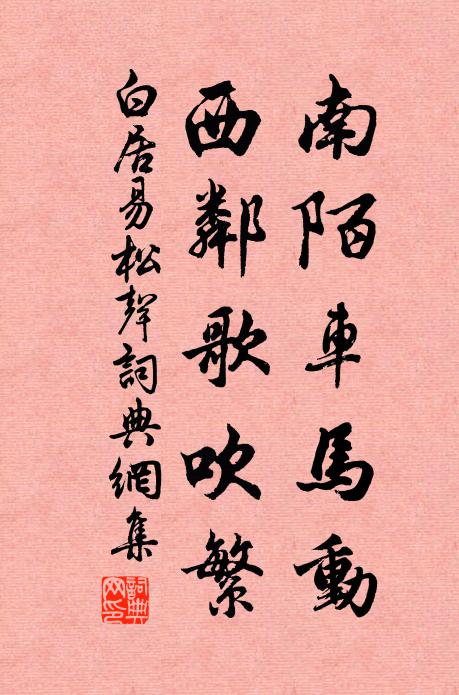 南陌車馬動
西鄰歌吹繁
白居易松聲詞典網集
詞典網印